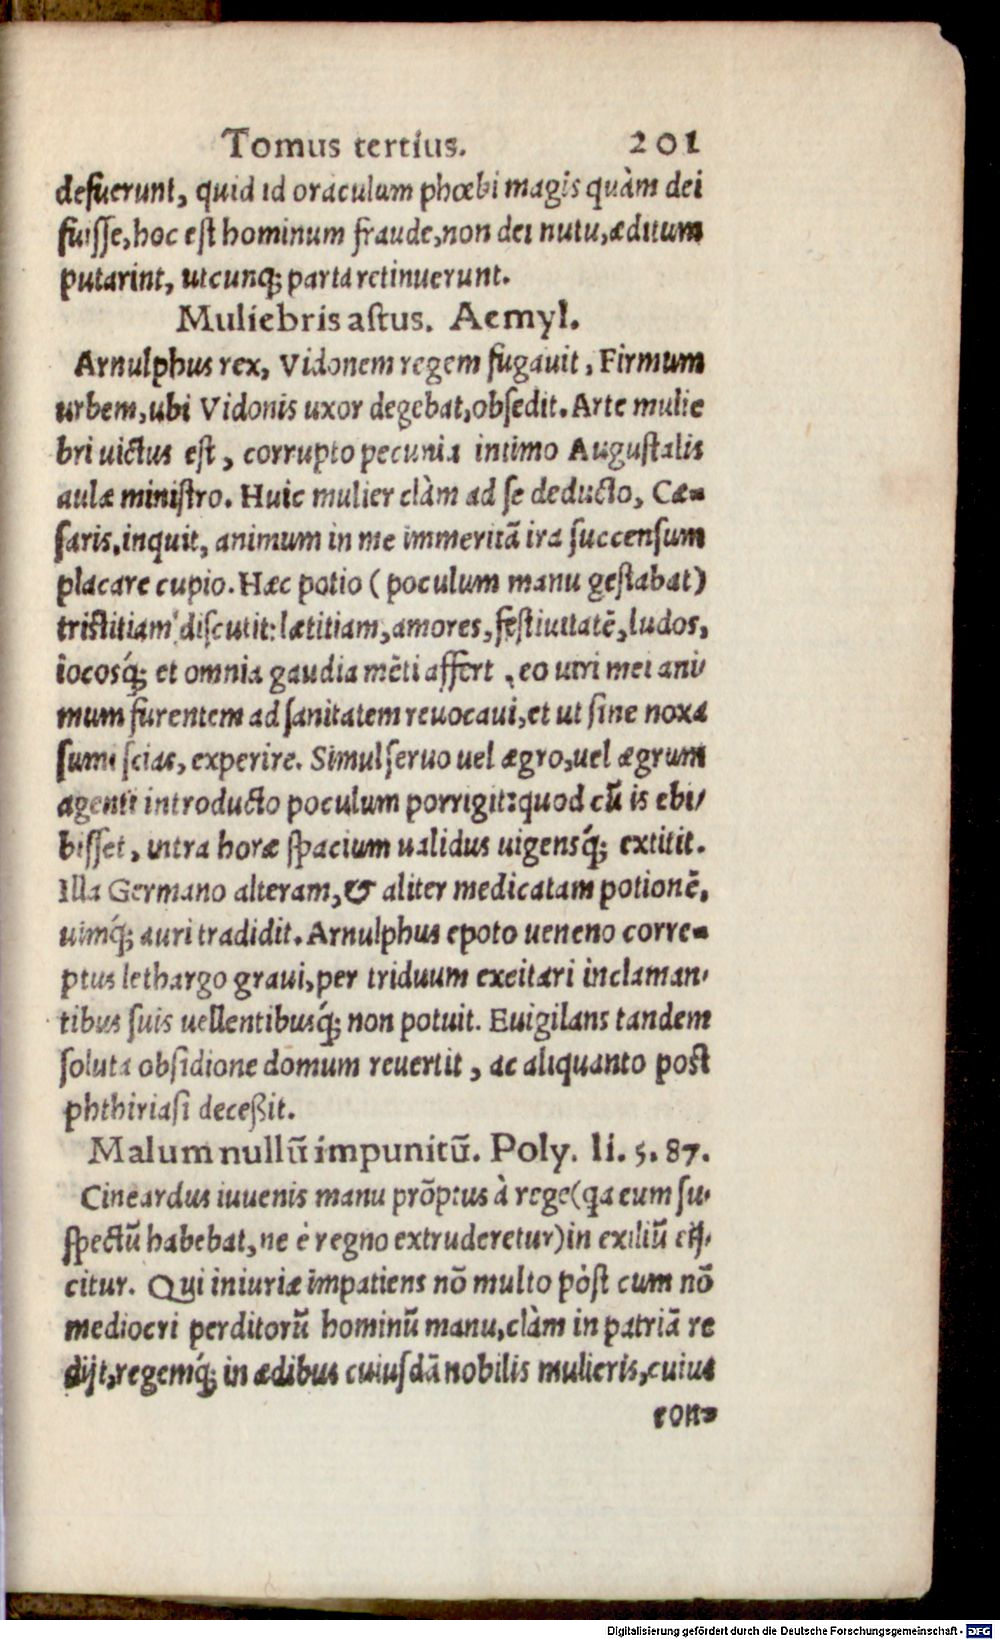 Tomus tertius. 201
defuerunt, quid id oraculum phœbi magis quàm dei
fuisse, hoc est hominum fraude, non dei nutu, æditum
putarint, utcunq; parta retinuerunt.
Muliebris astus. Aemyl.
Arnulphus rex, Vidonem regem fugauit, Firmum
urbem, ubi Vidonis uxor degebat, obsedit. Arte mulie
bri uictus est, corrupto pecunia intimo Augustalis
aulæ ministro. Huic mulier clàm ad se deducto, Cæ-
saris, inquit, animum in me immeritã ira succensum
placare cupio. Hæc potio (poculum manu gestabat)
tristitiam discutit: lætitiam, amores, festiuitatẽ, ludos,
iocosq́; et omnia gaudia mẽti affert, eo uiri mei ani
mum furentem ad sanitatem reuocaui, et ut sine noxa
sumi scias, experire. Simul seruo uel ægro, uel ægrum
agenti introducto poculum porrigit: quod cũ is ebi/
bisset, intra horæ spacium ualidus uigensq́; extitit.
Illa Germano alteram, & aliter medicatam potionẽ,
uimq́; auri tradidit. Arnulphus epoto ueneno corre-
ptus lethargo graui, per triduum exeitari inclaman-
tibus suis uellentibusq́; non potuit. Euigilans tandem
soluta obsidione domum reuertit, ac aliquanto post
phthiriasi deceßit.
Malum nullũ impunitũ. Poly. li. 5. 87.
Cineardus iuuenis manu prõptus à rege (qa eum su-
spectũ habebat, ne è regno extruderetur) in exiliũ eij-
citur. Qui iniuriæ impatiens nõ multo pòst cum nõ
mediocri perditorũ hominũ manu, clàm in patriã re
dijt, regemq́; in ædibus cuiusdã nobilis mulieris, cuius
con-
Digitalisierung gefördert durch die Deutsche Forschungsgemeinschaft - DFG